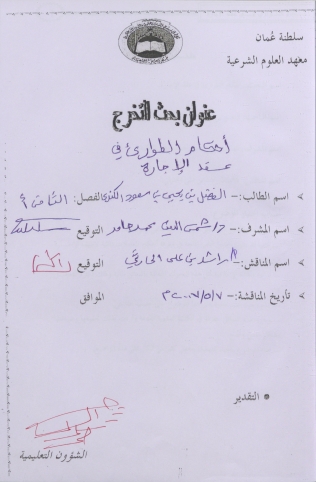 سلطنة عُمان
معهد العلوم الشرعية
عنوان بحث التخرج
أحكام الطوارئ في
عقد الإجارة
> اسم الطالب:- الفضل بن يحيى بن سعود الكندي الفصل: الثامن أ
> اسم المشرف:- د/ شمس الدين محمد حامد التوقيع
> اسم المناقش:- أ/ راشد بن علي الحارثي التوقيع
> تأريخ المناقشة:- ٢٠٠٧/٥/٧م الموافق
* التقدير
الشؤون التعليمية